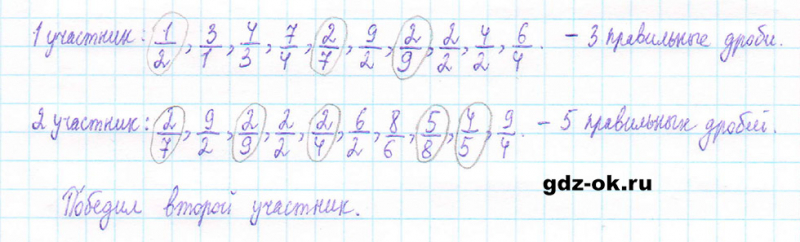 1 участник: 1/2, 3/1, 4/3, 7/4, 2/7, 9/2, 2/9, 2/2, 4/2, 6/4. – 3 правильные дроби.
2 участник: 2/7, 9/2, 2/9, 2/2, 2/4, 6/2, 8/6, 5/8, 4/5, 9/4. – 5 правильных дробей.
gdz-ok.ru
Победил второй участник.